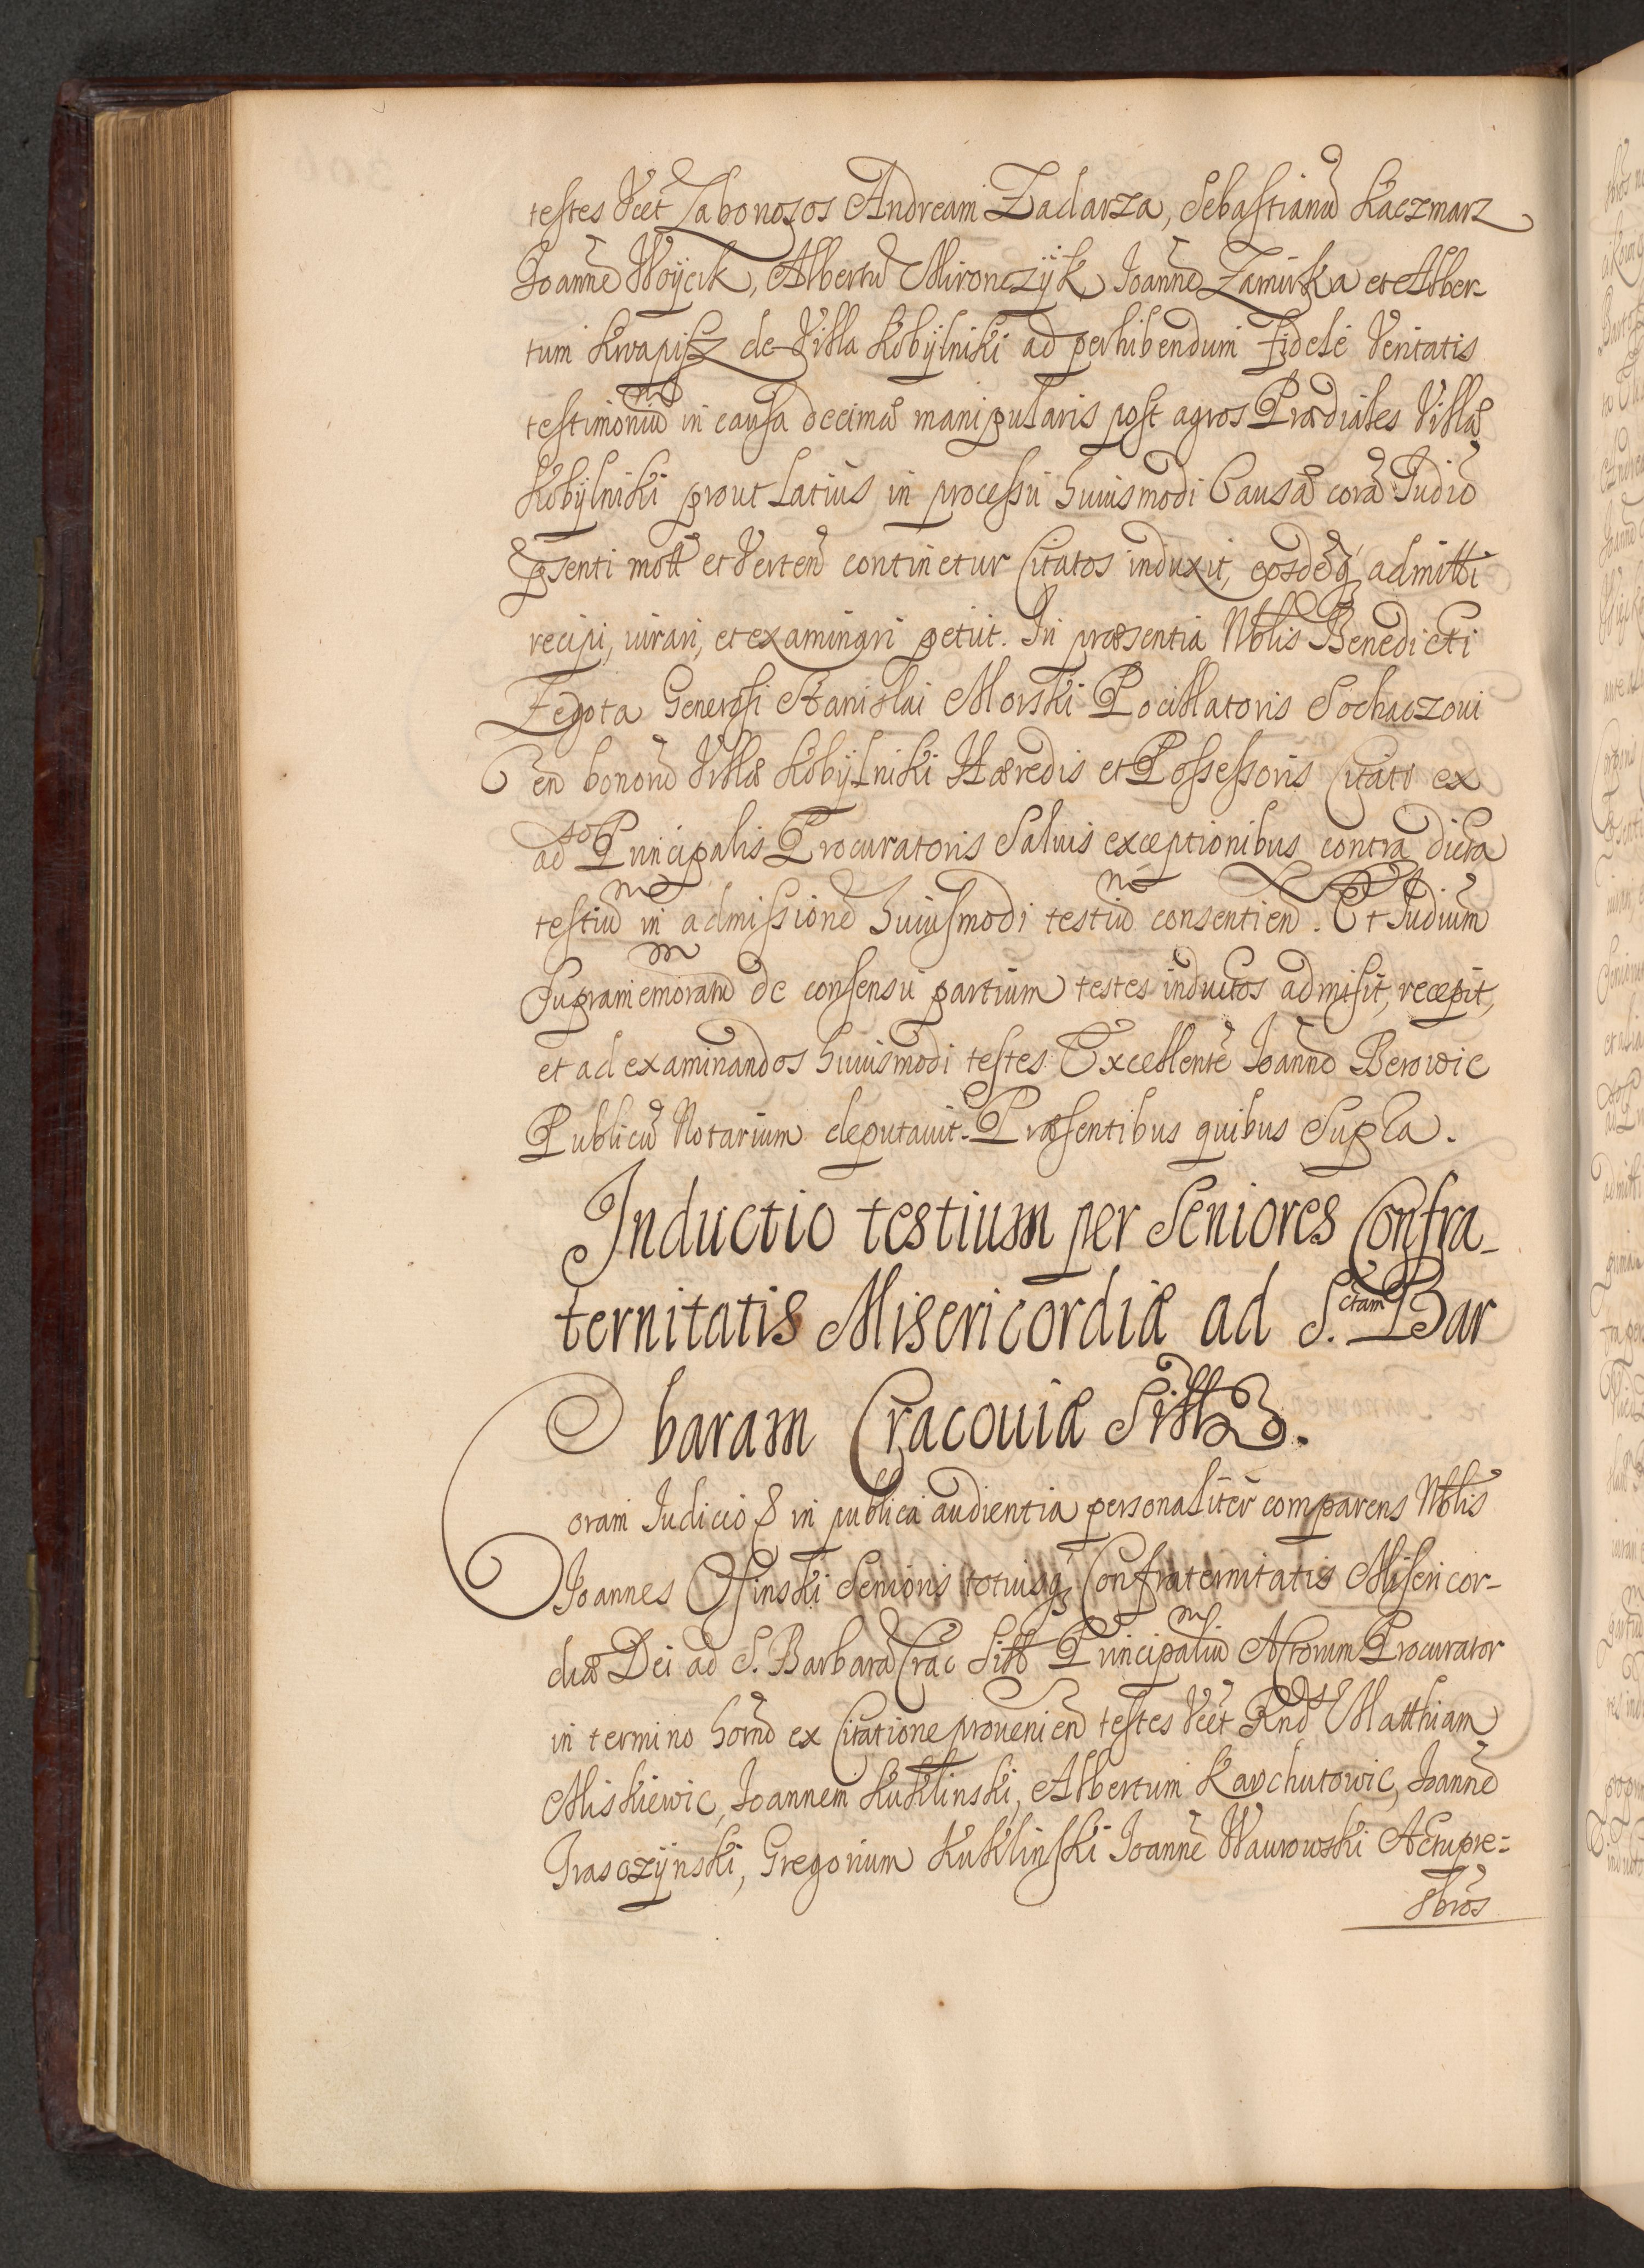 testes Vcet Labonosos Andream Zadarza, Sebastianū Kaczmarz
Joannē Woycik, Albertū Mironczÿk, Joannē Zamirka et Alber-
tum Kwapisz de Villa Kobÿlniki ad perhibendum fidele Veritatis
testimoniū in causa decimæ manipularis post agros Prædiales Villæ
Kobÿlniki prout latius in processu huiusmodi Causæ corā Judiō
pnti mott et Verten continetur Citatos induxit, eosdēq admitti
recipi, iurari, et examinari petiit. In præsentia Nblis Benedicti
Zegota Generosi Stanislai Morski Pocillatoris Sochaczoui
en bonorū Villæ Kobÿlniki Hæredis et Possessoris Citati ex
adso Principalis Procuratoris Saluis exceptionibus contra dicta
testiū in admissionē huiusmodi testiū consentien. Et Judium
Supramemoratū de consensu partium testes inductos admisit, recepit,
et ad examinandos huiusmodi testes Excellentē Joannē Berowic
Publicū Notarium deputauit. Præsentibus quibus Supra.
Inductio testium per Seniores Confra-
ternitatis Misericordiæ ad S.ctam Bar
baram Cracouiæ Sitt.
Coram Judicio & in publica audientia personaliter comparens Nblis
Joannes Osinski Senioris totiusq Confraternitatis Misericor-
diæ Dei ad S. Barbarā Crac Sitt Principaliū Actorum Procurator
in termino hodrno ex Citatione prouenien testes Vcet Rnd Matthiam
Miskiewic, Joannem Kuklinski, Albertum Karchutowic, Joannē
Trasczÿnski, Gregorium Kuklinski Joannē Waurowski A Empre=
sbros